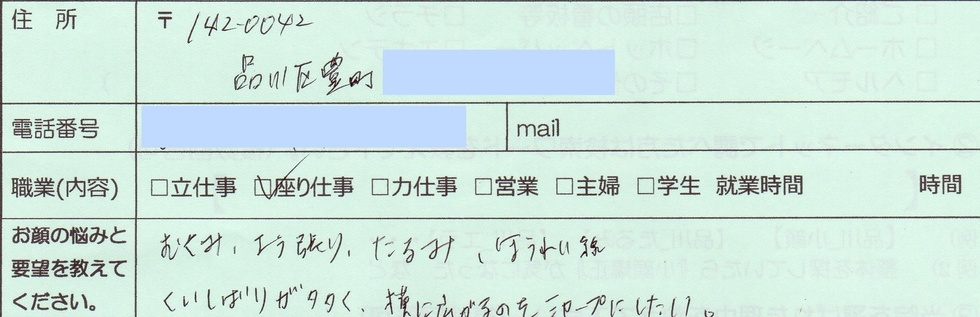 住 所 〒142-0042
品川区豊町
電話番号 mail
職業(内容) □立仕事 ☑座り仕事 □力仕事 □営業 □主婦 □学生 就業時間 時間
お顔の悩みと
要望を教えて
ください。
むくみ、えら張り、たるみ、ほうれい線
くいしばりが多く、横に広がるのをシャープにしたい。